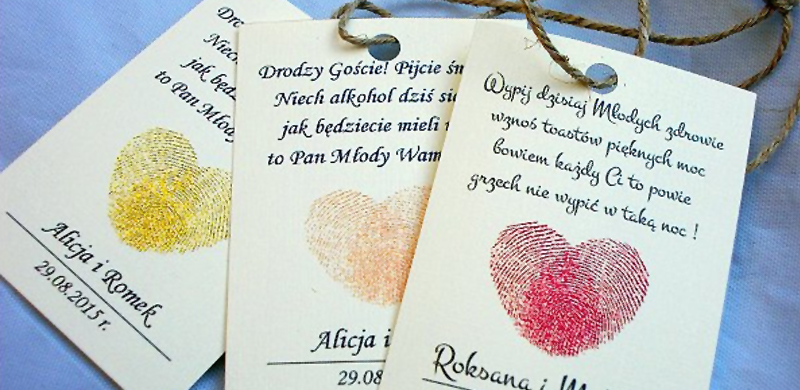 Niech
jak
to Pan Młody
Alicja i Romek
29.08.2015 r.
Drodzy Goście! Pijcie
Niech alkohol dziś
jak będziecie mieli
to Pan Młody Wam
Alicja i
29.08
Wypij dzisiaj Młodych zdrowie
wznoś toastów pięknych moc
bowiem każdy Ci to powie
grzech nie wypić w taką noc !
Roksana i